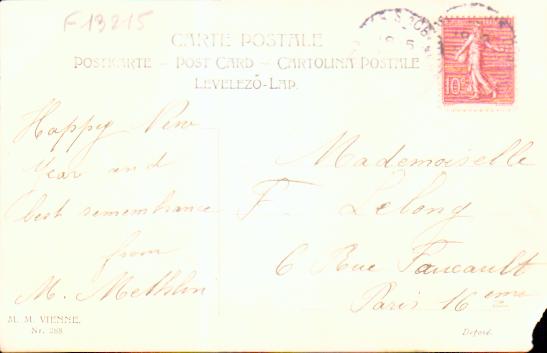 F13215
CARTE POSTALE
POSTKARTE – POST CARD – CARTOLINA POSTALE
LEVELEZŐ-LAP.
10c
Happy New
Year and
best remembrance
from
M. Methlin
Mademoiselle
F. Lelong
6 Rue Faucault
Paris 16eme
M. M. VIENNE,
Nr. 288
Déposé.